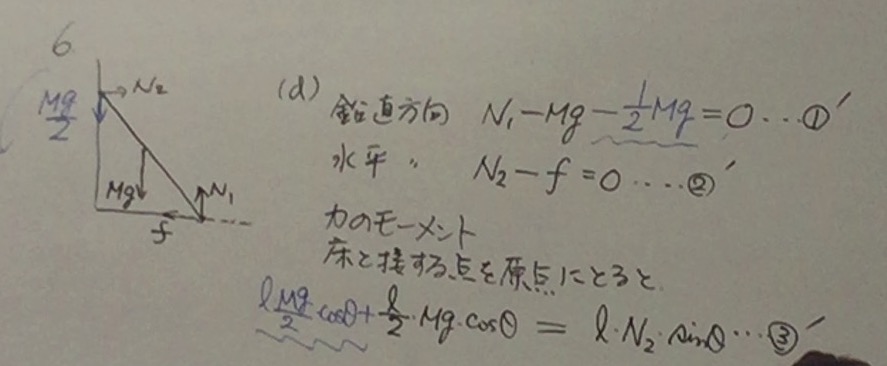 6
N₂
Mg/2
Mg
N₁
f
(d)
鉛直方向 N₁-Mg-1/2Mg=0…①′
水平 〃 N₂-f=0…②′
力のモーメント
床と接する点を原点にとると
l Mg/2・cosθ+l/2・Mg・cosθ = l・N₂・sinθ…③′